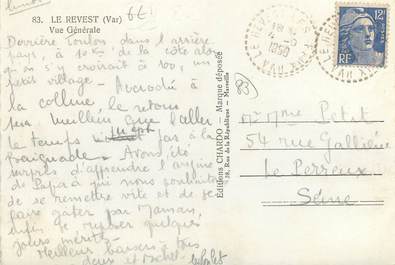 83. LE REVEST (Var)
Vue Générale
6E
Derrière Toulon dans l'arrière
pays, à 10 km de la côte alors
qu'on s'en croirait à 100, un
petit village - Accroché à
la colline, le retour
sera meilleur que l'aller
le temps n'est pas à la
baignade - Avons été
surpris d'apprendre l'angine
de Papa à qui nous souhaitons
de se remettre vite et de se
faire gâter par Maman,
enfin de reposer quelques
jours mérités -
Meilleurs baisers à tous
deux et Michel
Editions CHARDO - Marque déposée
38, Rue de la République - Marseille
83
LE REVEST
1950
VAR
12F
RF
Mr Mme Petit
54 rue Galliéni
Le Perreux
Seine